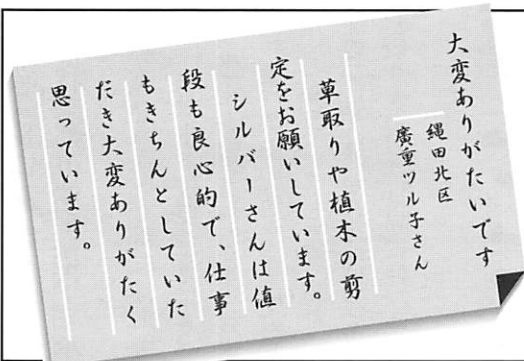 大変ありがたいです
縄田北区
廣重ツル子さん
草取りや植木の剪
定をお願いしています。
シルバーさんは値
段も良心的で、仕事
もきちんとしていた
だき大変ありがたく
思っています。